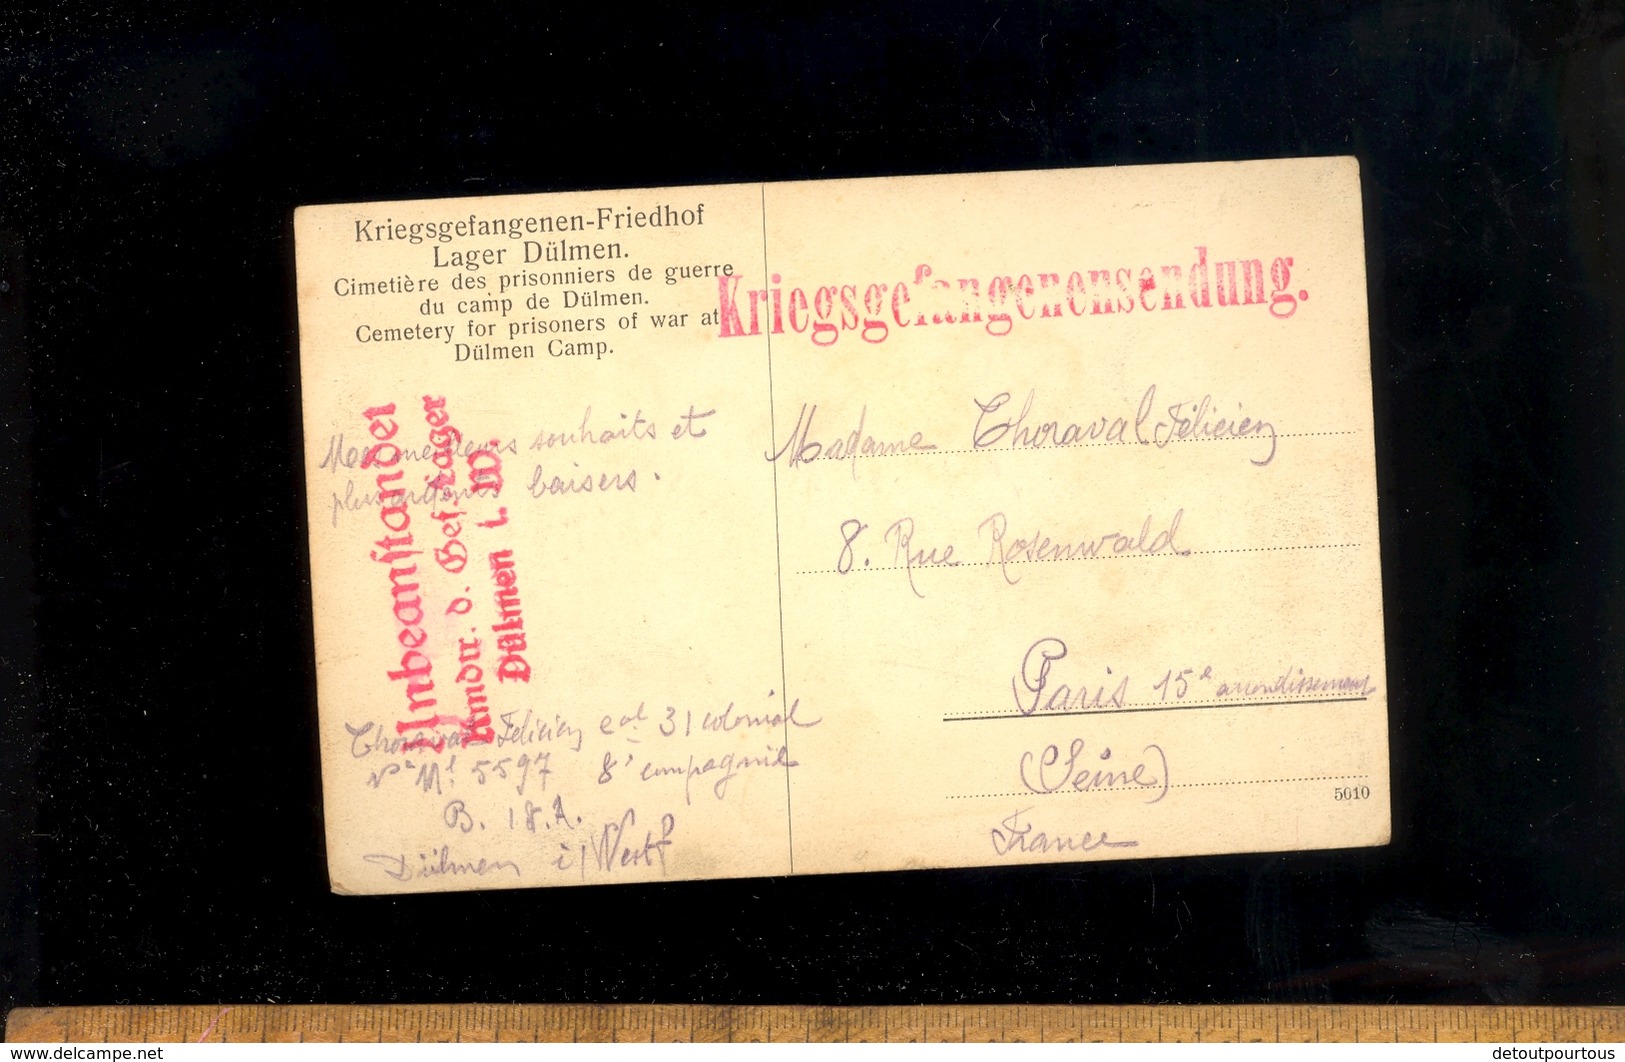 Kriegsgefangenen-Friedhof
Lager Dülmen.
Cimetière des prisonniers de guerre
du camp de Dülmen.
Cemetery for prisoners of war at
Dülmen Camp.
Kriegsgefangenensendung.
Mes meilleurs souhaits et
plus ardents baisers.
Unbeanstandet
Kmdtr. d. Gef. Lager
Dülmen i. W.
Thoraval Félicien cal 31 colonial
No Ml 5597 8e compagnie
B. 18.A.
Dülmen i/Westf
Madame Thoraval Félicien
8. Rue Rosenwald
Paris 15e arrondissement
(Seine)
France
5610
detoutpourtous
www.delcampe.net